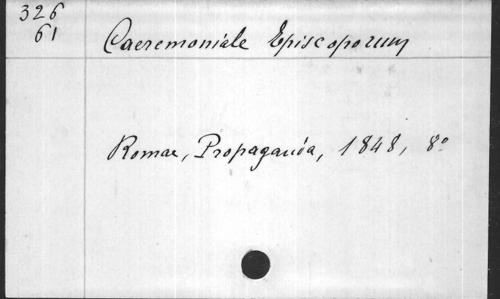 326
61
Caeremoniale Episcoporum
Romae, Propaganda, 1848, 8º